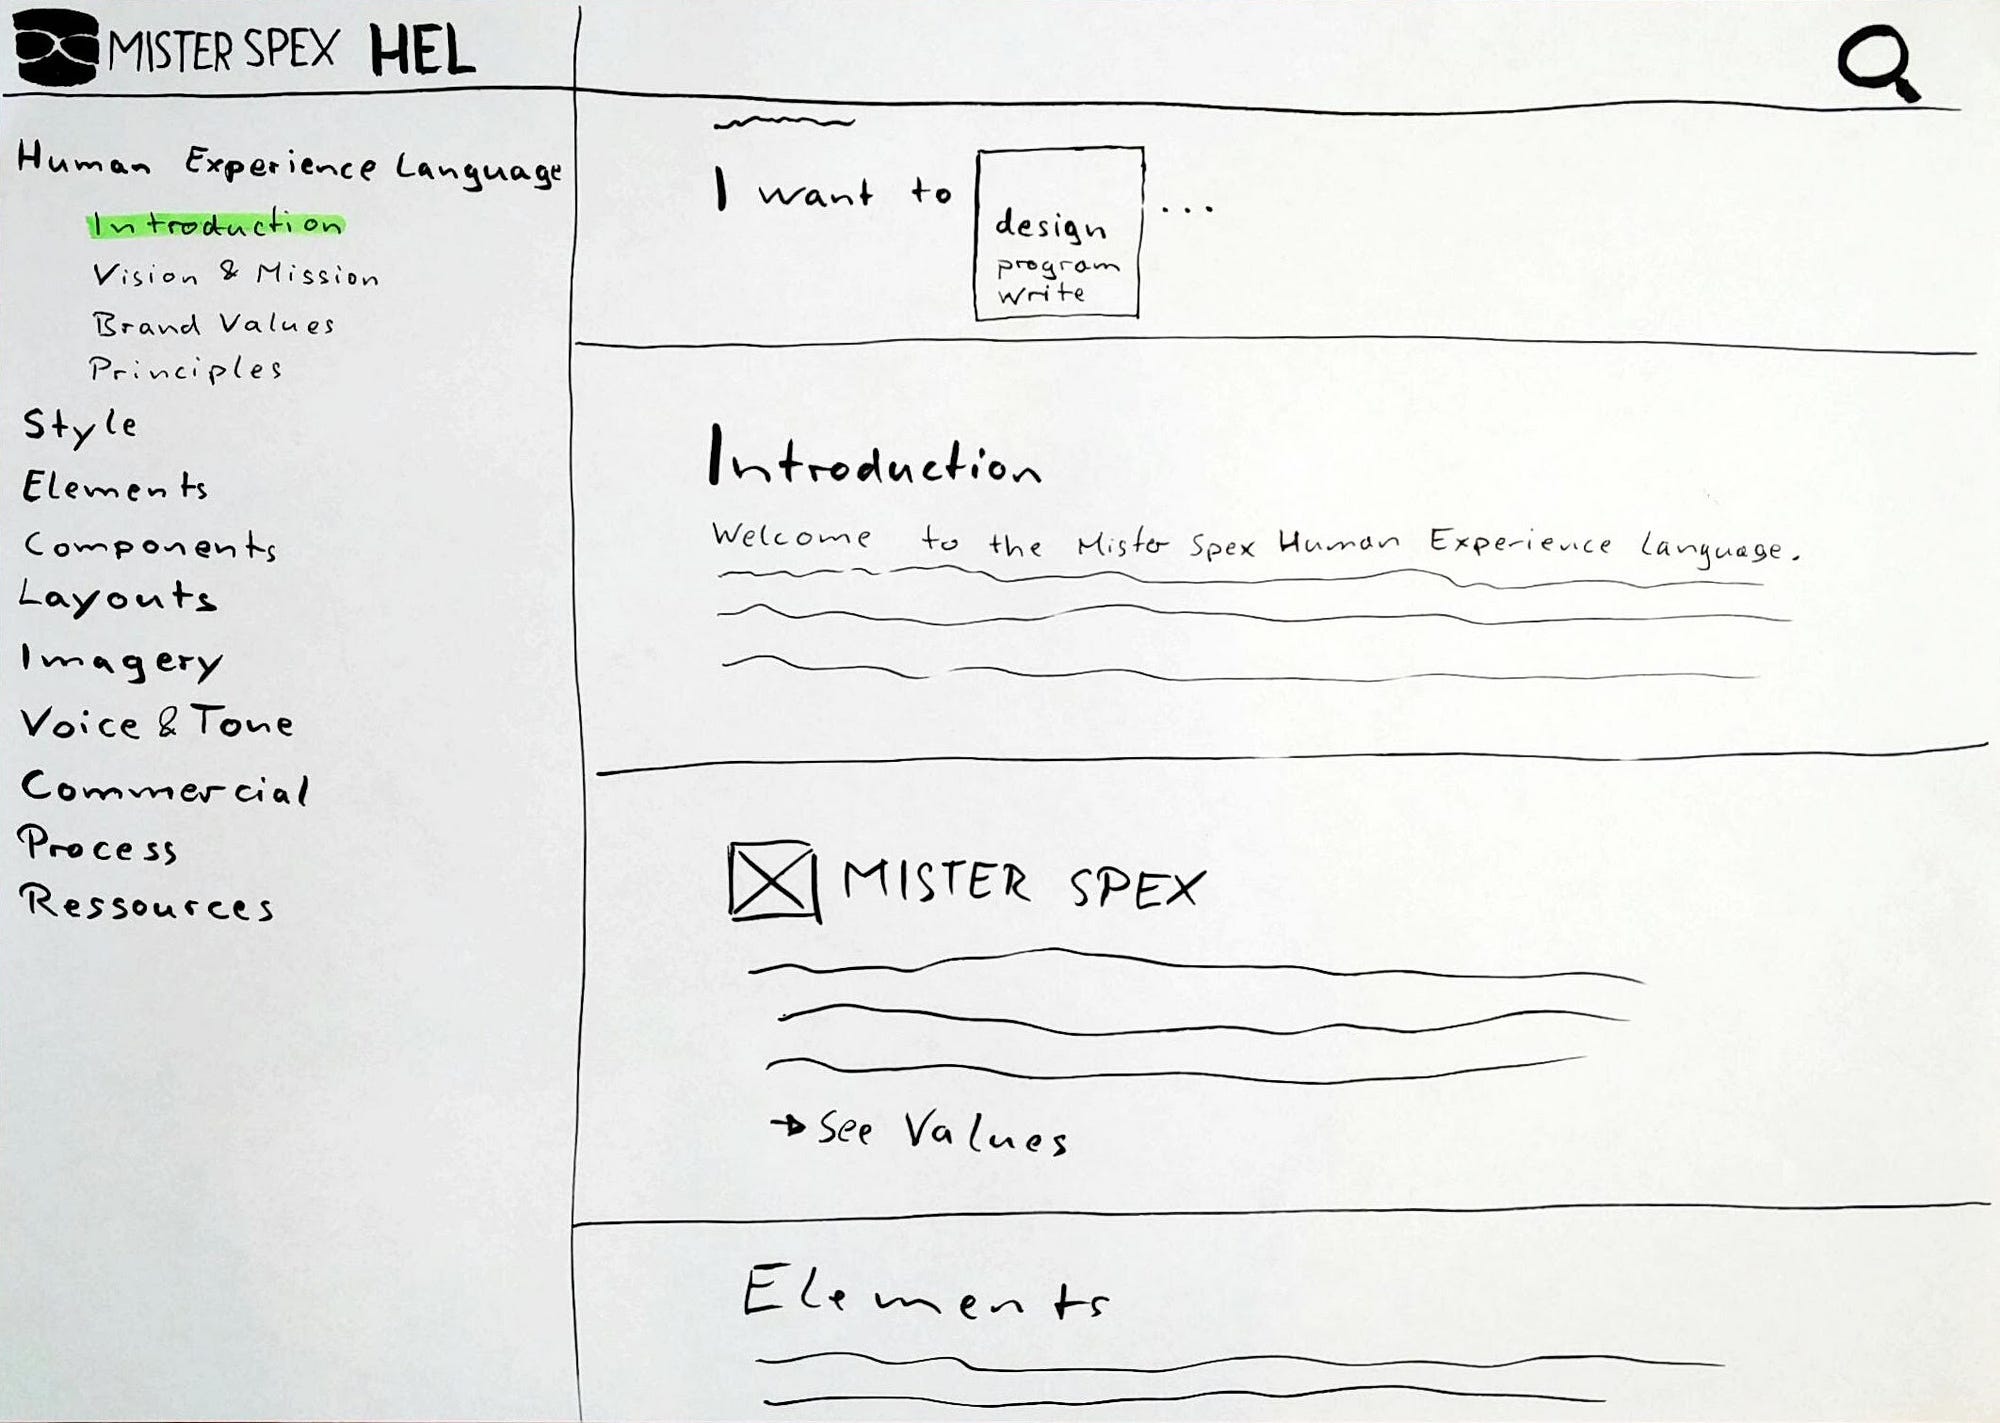 MISTER SPEX HEL
Human Experience Language
Introduction
Vision & Mission
Brand Values
Principles
Style
Elements
Components
Layouts
Imagery
Voice & Tone
Commercial
Process
Ressources
I want to
design
program
write
...
Introduction
Welcome to the Mister Spex Human Experience Language.
MISTER SPEX
→ See Values
Elements